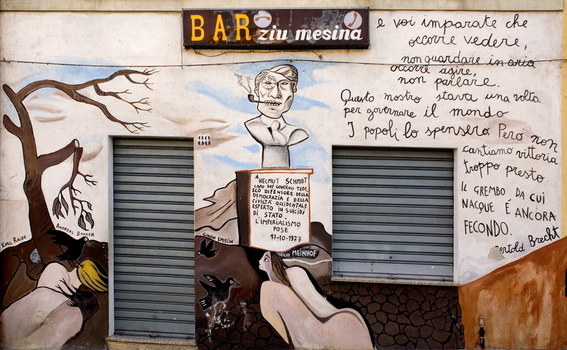 BAR ziu mesina
e voi imparate che
occorre vedere,
non guardare in aria
occorre agire,
non parlare.
Questo mostro stava una volta
per governare il mondo
I popoli lo spensero Però non
cantiamo vittoria
troppo presto
IL GREMBO DA CUI
NACQUE É ANCORA
FECONDO.
Bertold Brecht
A
HELMUT SCHMIDT
CAPO DEL GOVERNO TEDE
SCO DIFENSORE DELLA
DEMOCRAZIA E DELLA
CIVILTÀ OCCIDENTALE
ESPERTO IN SUICIDI
DI STATO
L'IMPERIALISMO
POSE
17-10-1977
KARL RASPE
ANDREAS BAADER
ENSSLIN
MEINHOF